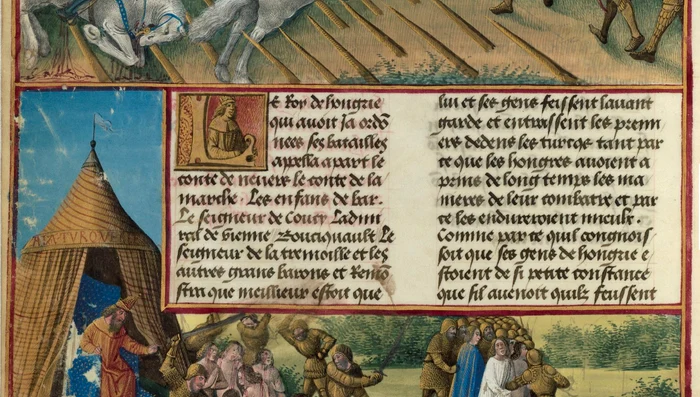 Le Roy de hongrie
qui avoit ja ordō
nees ses batailles
apella apart le
conte de nevers le conte de la
marche . Les enfans de bar .
Le seigneur de Coucy Ladmi
ral de vienne Bouciquault Le
seigneur de la tremoille et les
autres grans barons et Remō
stra que meilleur estoit que
lui et ses gens feissent lavant
garde et entrassent les premi
ers dedens les turcqz tant par
ce que les hongres avoient a
prins de long temps les ma
nieres de leur combatre et par
ce les endureroient mieulx .
Comme par ce quil congnois
soit que ses gens de hongrie e
stoient de si petite constance
que sil avenoit quilz feussent